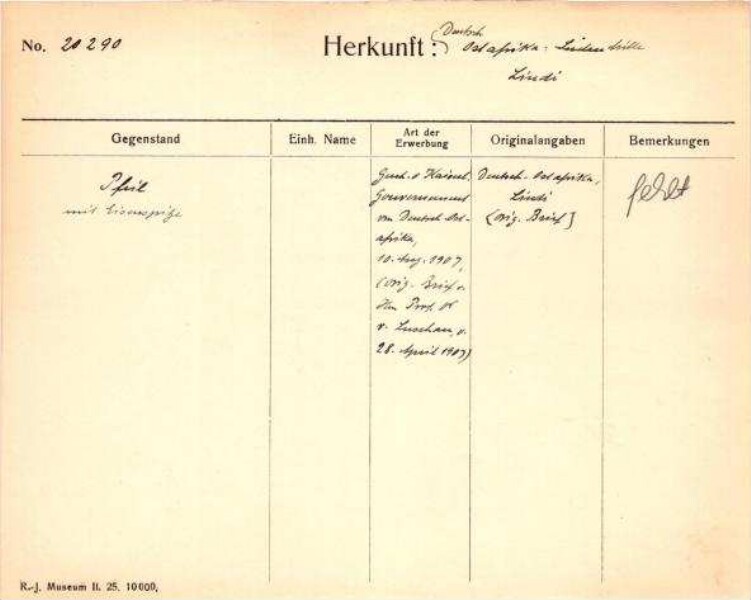 No. 20290
Herkunft: Deutsch
Ostafrika
Lindi
Gegenstand
Einh. Name
Art der
Erwerbung
Originalangaben
Bemerkungen
Pfeil
mit Eisenspitze
Gesch. d. Kaiserl.
Gouvernement
von Deutsch Ost-
afrika,
10. Aug. 1907,
(orig. Brief v.
Hrn Prof.
v. Luschan, v.
28. April 1907)
Deutsch-Ostafrika,
Lindi
(orig. Brief)
fehlt
R.-J. Museum II. 25. 10000,